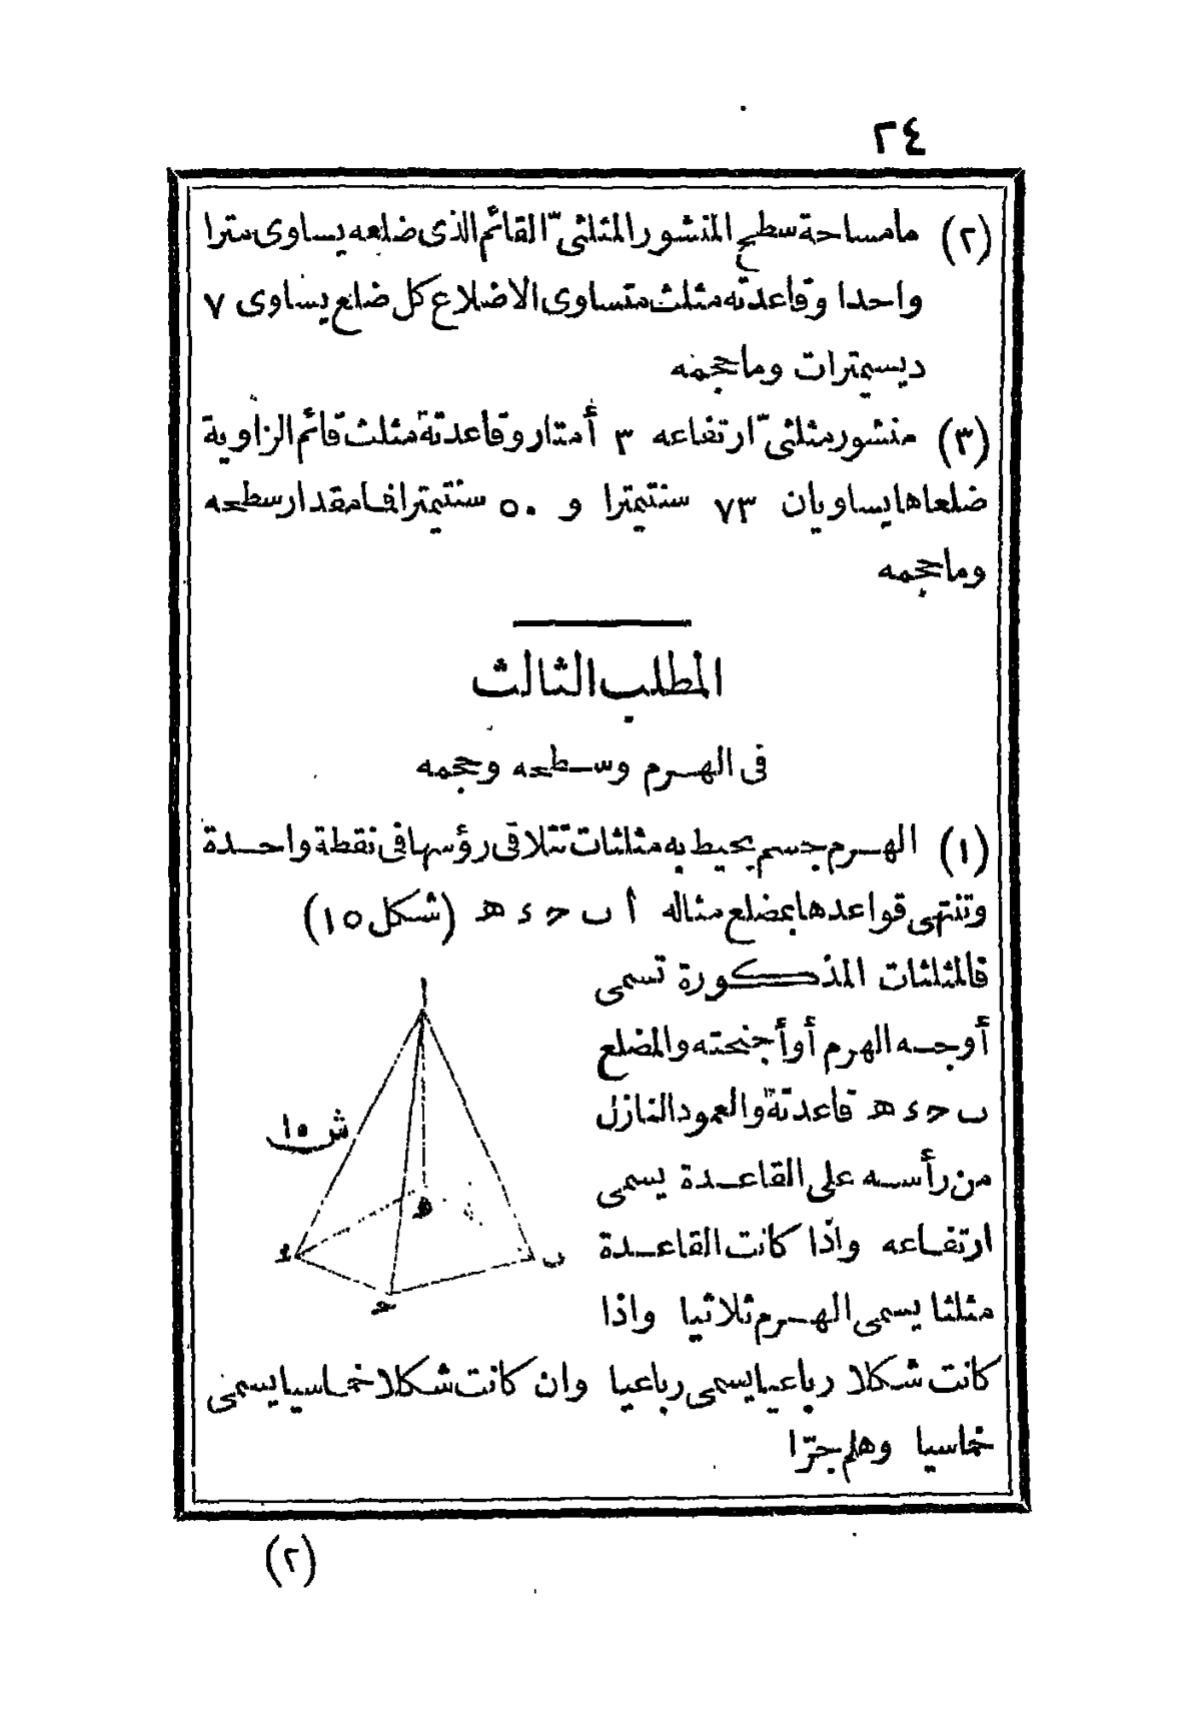 ٢٤
(٢) ما مساحة سطح المنشور المثلثى القائم الذى ضلعه يساوى مترا
واحدا وقاعدته مثلث متساوى الاضلاع كل ضلع يساوى ٧
ديسيمترات وما حجمه
(٣) منشور مثلثىّ ارتفاعه ٣ أمتار وقاعدتة مثلث قائم الزاوية
ضلعاها يساويان ٧٣ سنتيمترا و ٥٠ سنتيمترا فما مقدار سطحه
وما حجمه
المطلب الثالث
فى الهرم وسطحه وحجمه
(١) الهرم جسم يحيط به مثلثات تتلاقى رؤسها فى نقطة واحدة
وتنتهى قواعدها بمضلع مثاله أ ب ح ء ه (شكل ١٥)
فالمثلثات المذكورة تسمى
أوجه الهرم أو أجنحته والمضلع
ب ح ء ه قاعدتة والعمود النازل
من رأسه على القاعدة يسمى
ارتفاعه واذا كانت القاعدة
مثلثا يسمى الهرم ثلاثيا واذا
كانت شكلا رباعيا يسمى رباعيا وان كانت شكلا خماسيا يسمى
خماسيا وهلم جرّا
ا
ش ١٥
ه
ء
ب
ح
(٢)